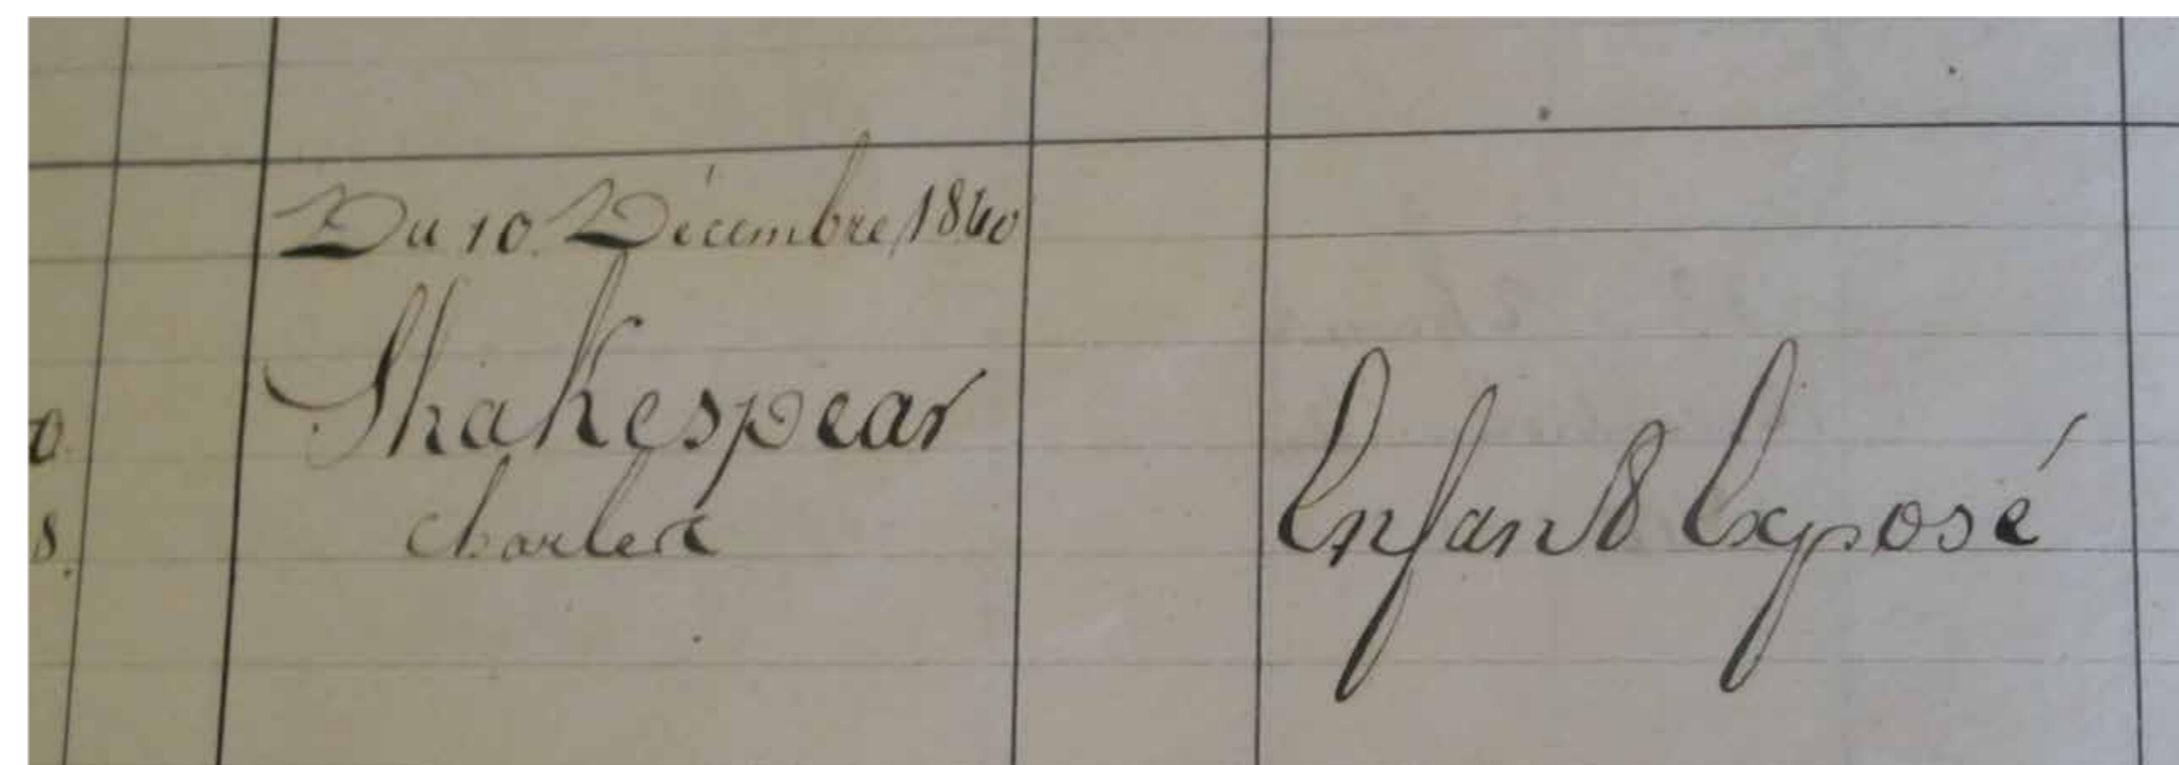 Du 10 Décembre 1840
Shakespear
Charles
Enfant Exposé